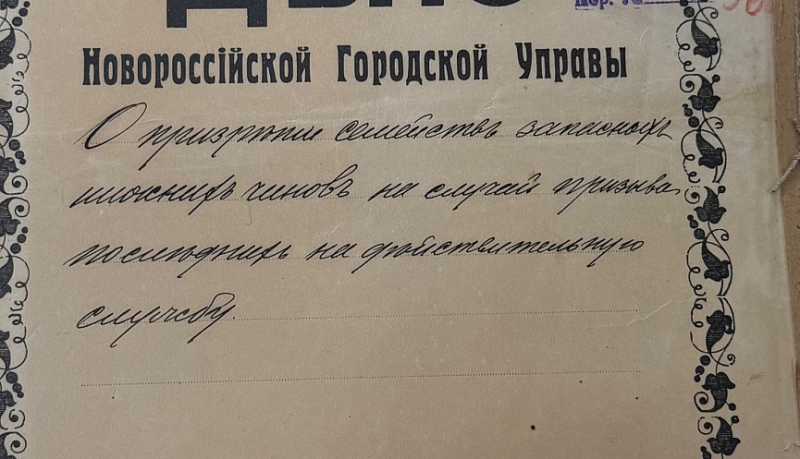 ДѢЛО
Новороссійской Городской Управы
О призрѣніи семействъ запасныхъ
нижнихъ чиновъ на случай призыва
послѣднихъ на дѣйствительную
службу.